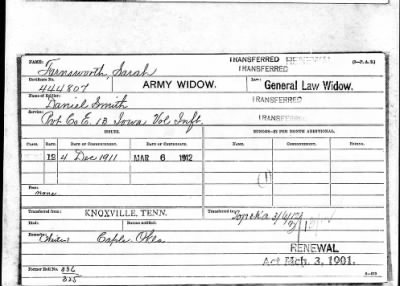 TRANSFERRED RENEWAL (3—P. A. K.)
NAME: Farnsworth, Sarah TRANSFERRED
Certificate No. 444807 ARMY WIDOW. Law: General Law Widow.
Name of Soldier: Daniel Smith TRANSFERRED
Service: Pvt Co E. 13 Iowa Vol Inft. TRANSFERRED
ISSUE. MINORS—$2 PER MONTH ADDITIONAL.
CLASS. RATE. DATE OF COMMENCEMENT. DATE OF CERTIFICATE. NAME. COMMENCEMENT. ENDING.
12 4 Dec 1911 MAR 6 1912
Fees: none
Transferred from: KNOXVILLE, TENN. Transferred to: Topeka
Remarks: Caple Okla
RENEWAL
Act Mch. 3, 1901.
Former Roll No. 836